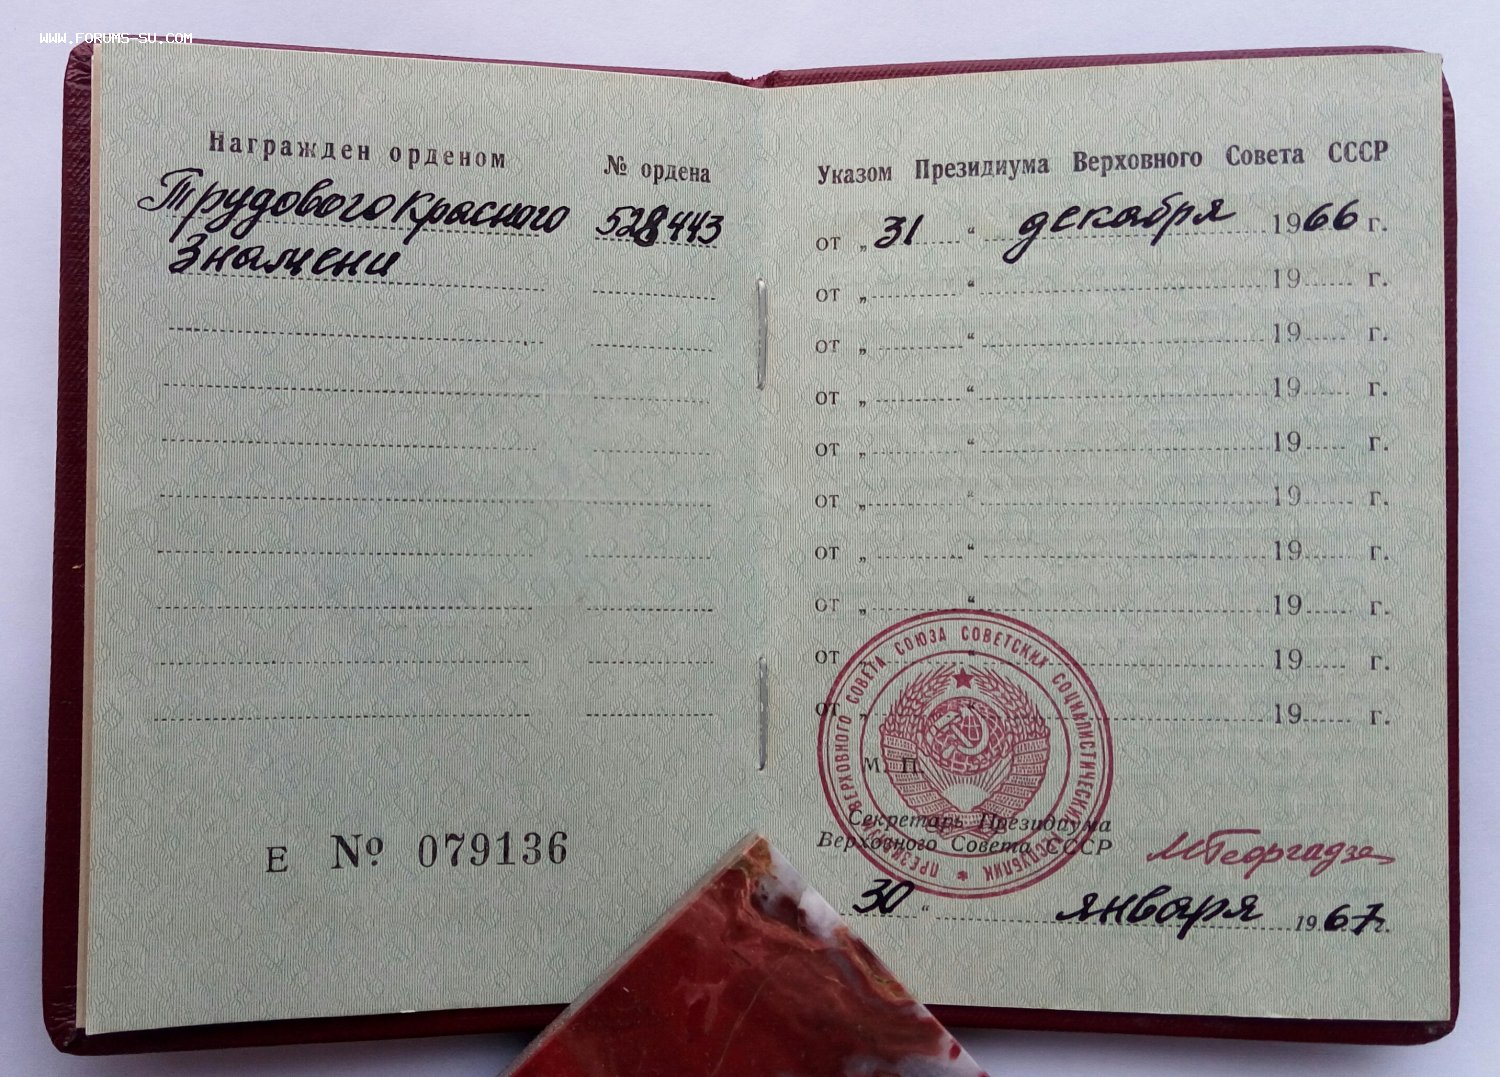 WWW.FORUMS-SU.COM
Награжден орденом
№ ордена
Трудового Красного
528443
Знамени
Е № 079136
Указом Президиума Верховного Совета СССР
от „ 31 “ декабря 1966 г.
от „ “ 19 г.
от „ “ 19 г.
от „ “ 19 г.
от „ “ 19 г.
от „ “ 19 г.
от „ “ 19 г.
от „ “ 19 г.
от „ “ 19 г.
от „ “ 19 г.
ПРЕЗИДИУМ ВЕРХОВНОГО СОВЕТА СОЮЗА СОВЕТСКИХ СОЦИАЛИСТИЧЕСКИХ РЕСПУБЛИК
М. П.
Секретарь Президиума
Верховного Совета СССР
МГеоргадзе
30 “ января 1967 г.